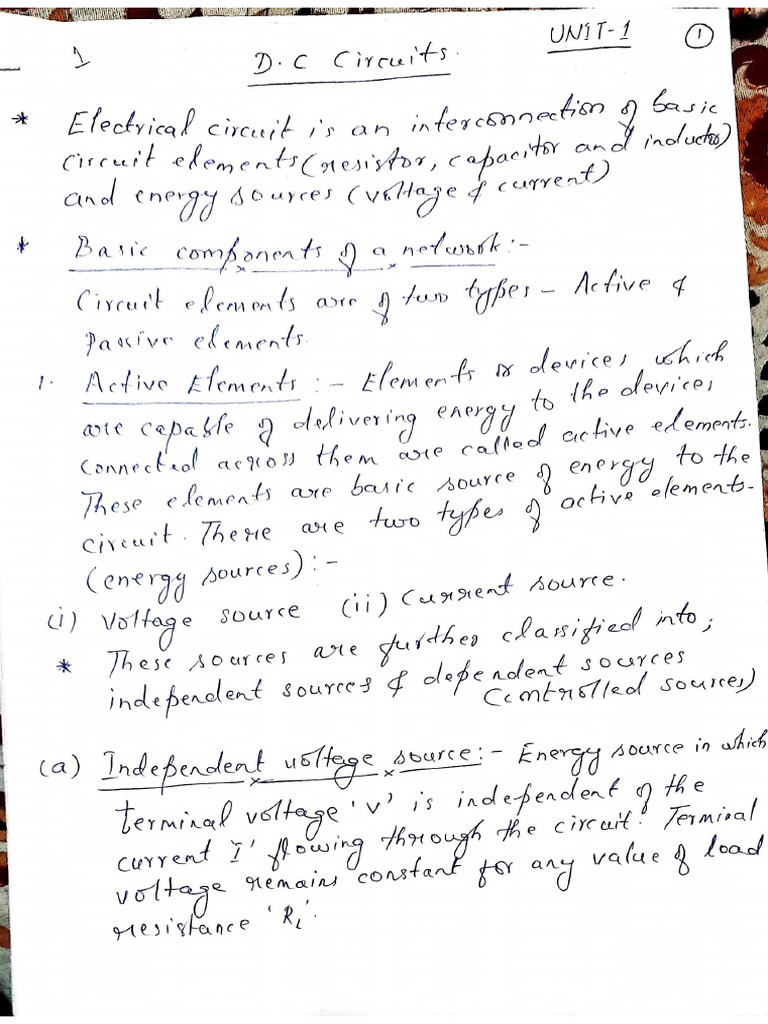 UNIT-1 1
1 D.C Circuits.
* Electrical circuit is an interconnection of basic
circuit elements (resistor, capacitor and inductor)
and energy sources (voltage & current)
* Basic components of a network:-
Circuit elements are of two types - Active &
Passive elements.
1. Active Elements :- Elements or devices which
are capable of delivering energy to the devices
connected across them are called active elements.
These elements are basic source of energy to the
circuit. There are two types of active elements-
(energy sources) :-
(i) Voltage source (ii) Current source.
* These sources are further classified into;
independent sources & dependent sources
(controlled sources)
(a) Independent voltage source:- Energy source in which
terminal voltage 'V' is independent of the
current 'I' flowing through the circuit. Terminal
voltage remains constant for any value of load
resistance 'RL'.